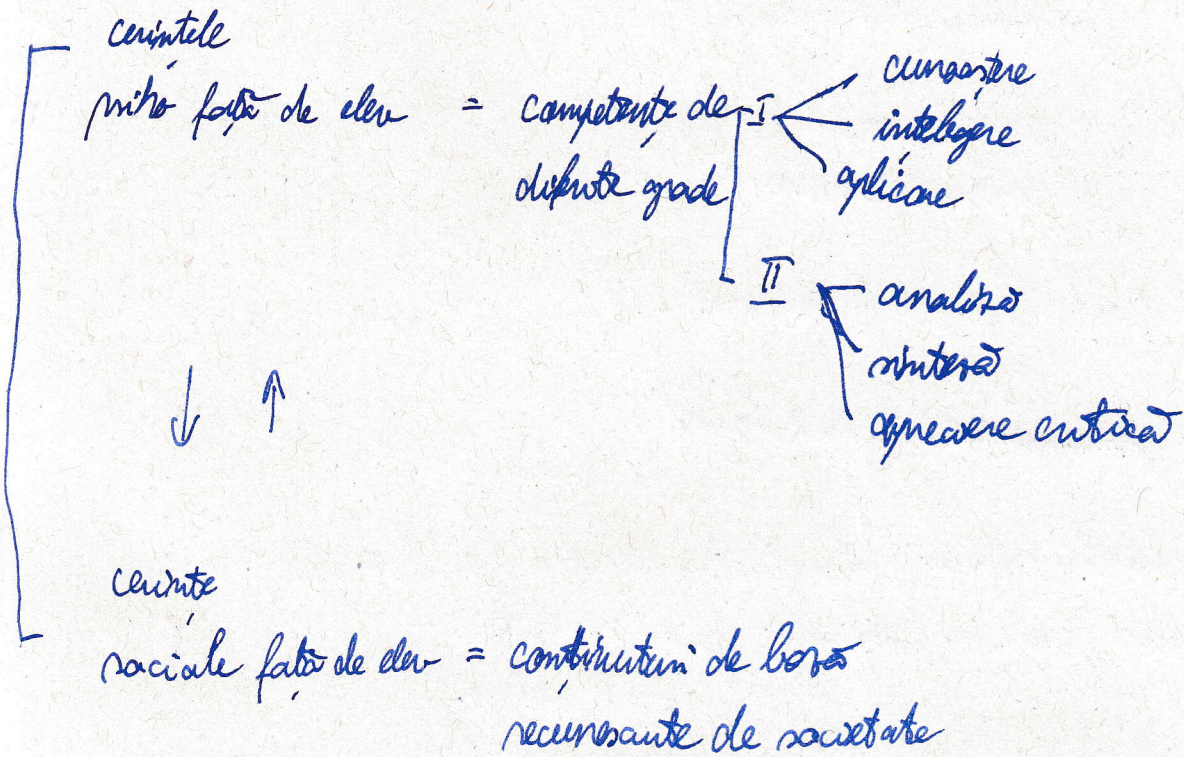 cerințele
psiho față de elev = competențe de
diferite grade
I
cunoaștere
înțelegere
aplicare
II
analiză
sinteză
apreciere critică
cerințe
sociale față de elev = conținuturi de bază
recunoscute de societate